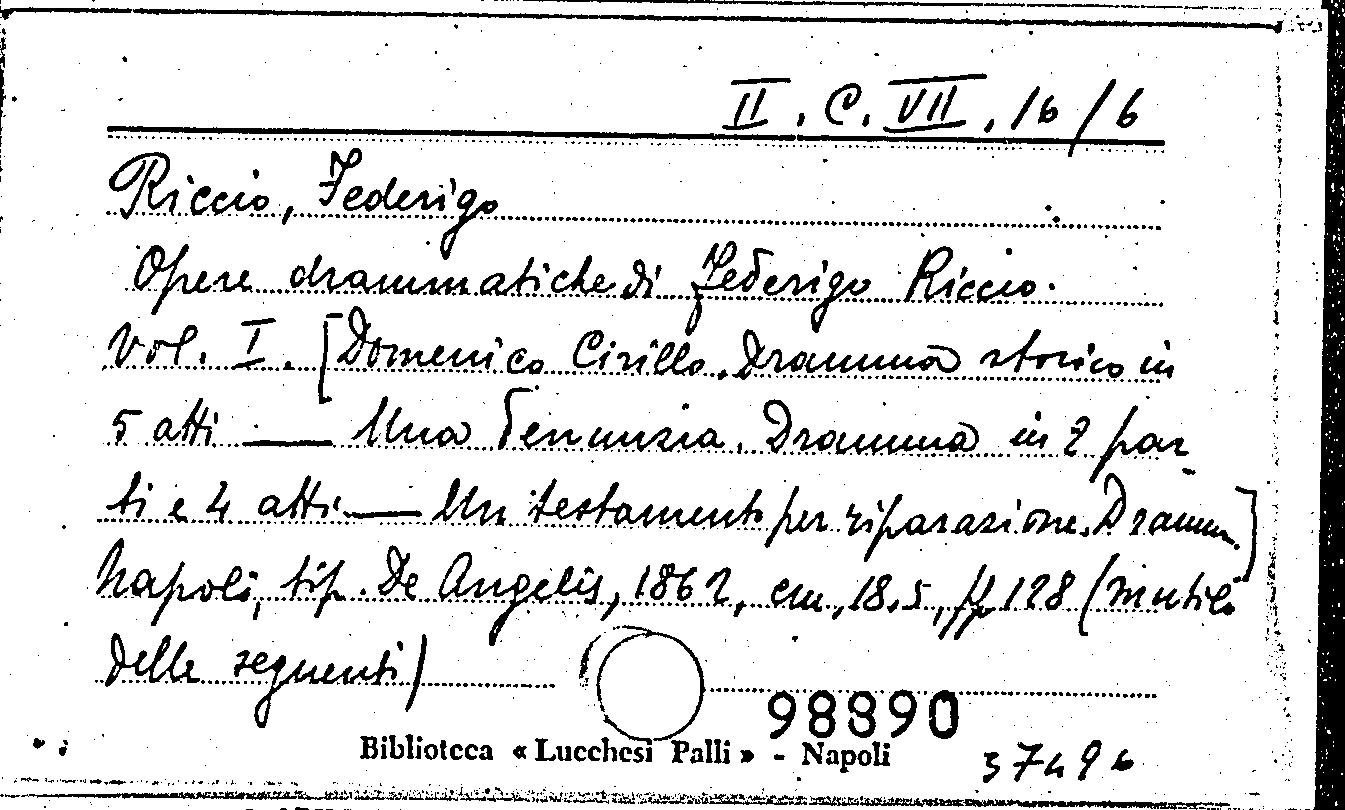 II. C. VII. 16/6
Riccio, Federigo
Opere drammatiche di Federigo Riccio.
Vol. I. [Domenico Cirillo. Dramma storico in
5 atti — Una denunzia. Dramma in 2 par-
ti e 4 atti. — Un testamento per riparazione. Dramm.]
Napoli, tip. De Angelis, 1862, cm. 18,5, pp. 128 (mutilo
delle seguenti)
98890
Biblioteca « Lucchesi Palli » - Napoli
37496